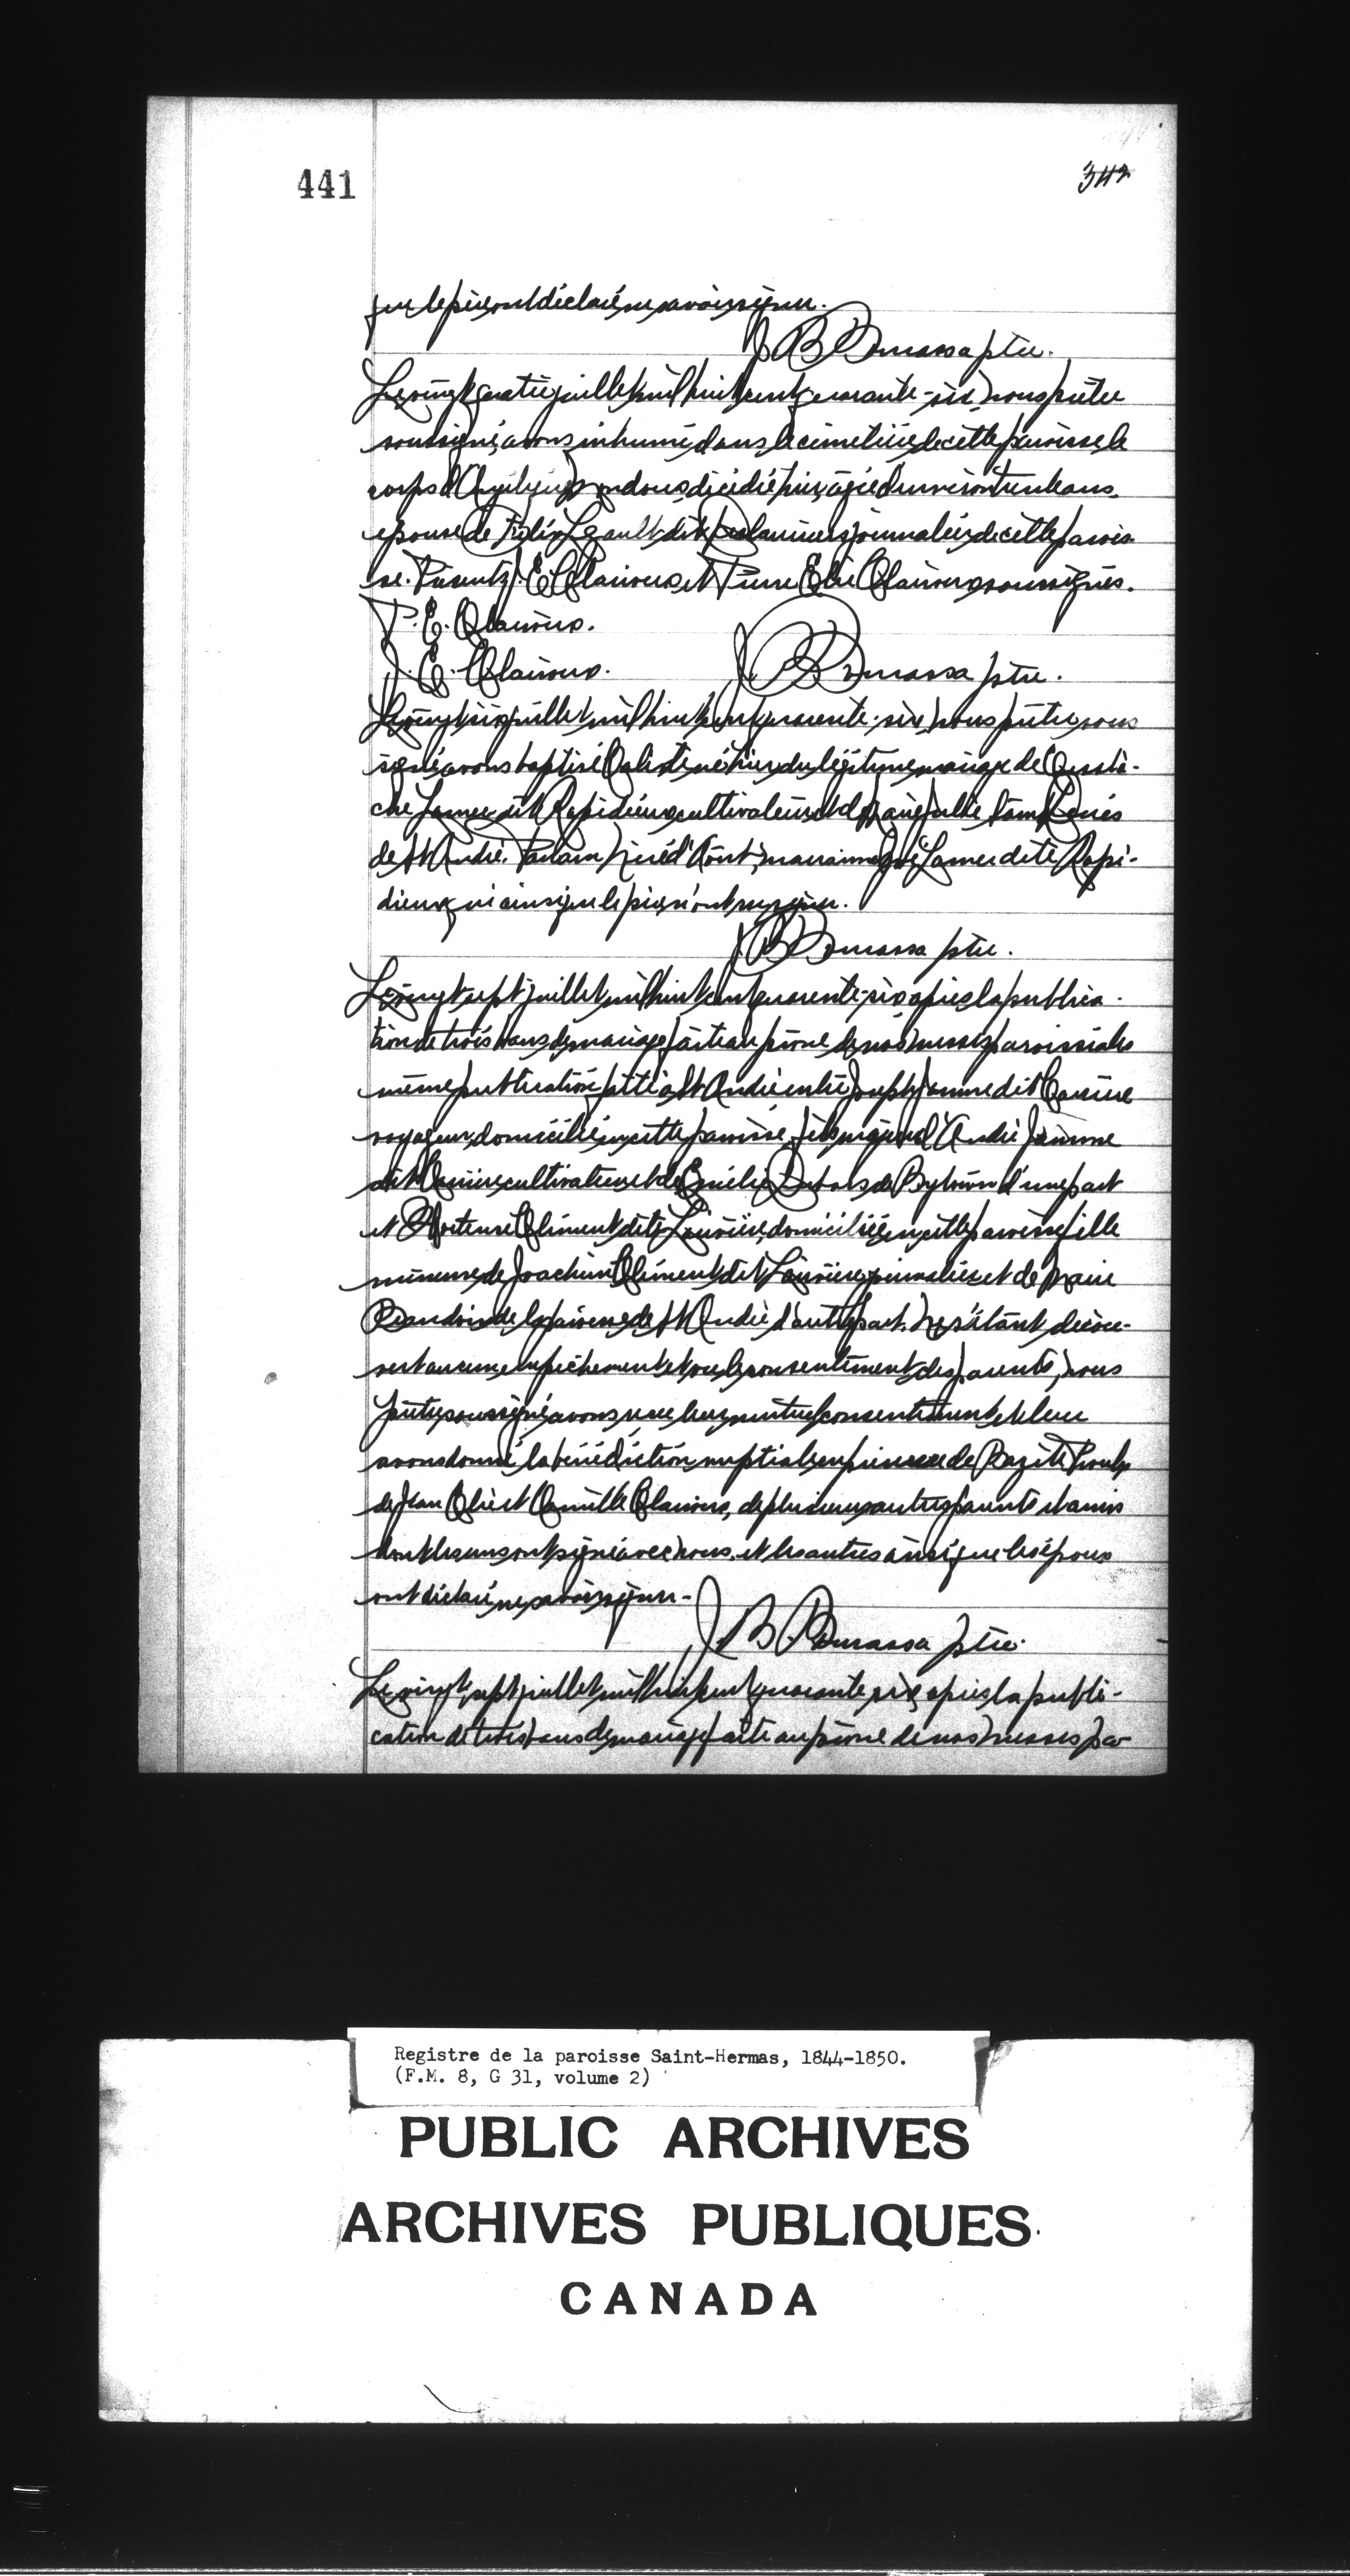 441
342
que le père ont déclaré ne savoir signer.
J B Bourassa ptre.
Le vingt quatre juillet mil huit cent quarante-six, nous prêtre
soussigné, avons inhumé dans le cimetière de cette paroisse le
corps d'Angélique décédée hier, âgée d'environ trente ans
épouse de Félix Legault dit Deslauriers journalier de cette parois
se. Présents J. E. Clairoux et Pierre Elie Clairoux soussignés.
P. E. Clairoux.
J. E. Clairoux.
J B Bourassa ptre.
Le vingt six juillet mil huit cent quarante-six, nous prêtre sous
signé avons baptisé Caliste né hier du légitime mariage de Eusta-
che Lamer dit Rapidieux cultivateur et de Marie Julie
de St André. Parrain marraine Lamer dite Rapi-
dieux qui ainsi que le père n'ont su signer.
J B Bourassa ptre.
Le vingt sept juillet mil huit cent quarante-six après la publica-
tion de trois bans de mariage faite au prône de nos messes paroissiales
même publication faite à St André entre Joseph Janvre dit
voyageur, domicilié en cette paroisse, fils majeur d'André Janvre
dit cultivateur et de Emélie Dubois de Bytown d'une part
et Hortense Clément dite Larivière, domiciliée en cette paroisse fille
mineure de Joachim Clément dit Larivière journalier et de Marie
Beaudoin de la paroisse de St André d'autre part. Ne s'étant décou-
vert aucun empêchement et vu le consentement des parents, nous
prêtre soussigné avons reçu leur mutuel consentement et leur
avons donné la bénédiction nuptiale en présence de Bazile
de Jean Elie et Camille Clairoux, de plusieurs autres parents et amis
dont les uns ont signé avec nous, et les autres ainsi que les époux
ont déclaré ne savoir signer.-
J. B. Bourassa ptre.
Le vingt sept juillet mil huit cent quarante six, après la publi-
cation de trois bans de mariage faite au prône de nos messes pa-
Registre de la paroisse Saint-Hermas, 1844-1850.
(F.M. 8, G 31, volume 2)
PUBLIC ARCHIVES
ARCHIVES PUBLIQUES
CANADA